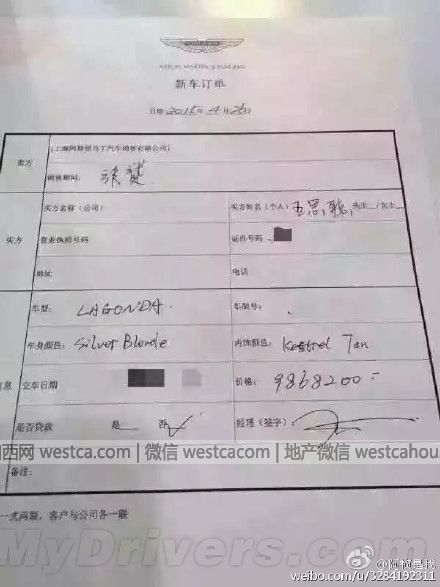 ASTON MARTIN SHANGHAI
新车订单
日期 2015年4月26日
卖方
(上海阿斯顿马丁汽车销售有限公司)
销售顾问:
买方名称(公司)
买方姓名(个人) 王思聪 先生__/女士__
买方
营业执照号码
证件号码
地址
电话
车型: LAGONDA
车架号:
车身颜色: Silver Blonde
内饰颜色: Kestrel Tan
信息
交车日期
价格: 9868200
是否贷款 是__ 否✓
经理(签字):
西网 westca.com | 微信 westcacom | 地产微信 westcahous
备注:
一式两联,客户与公司各一联
MyDrivers.com
@阿帧是我
weibo.com/u/3284192311